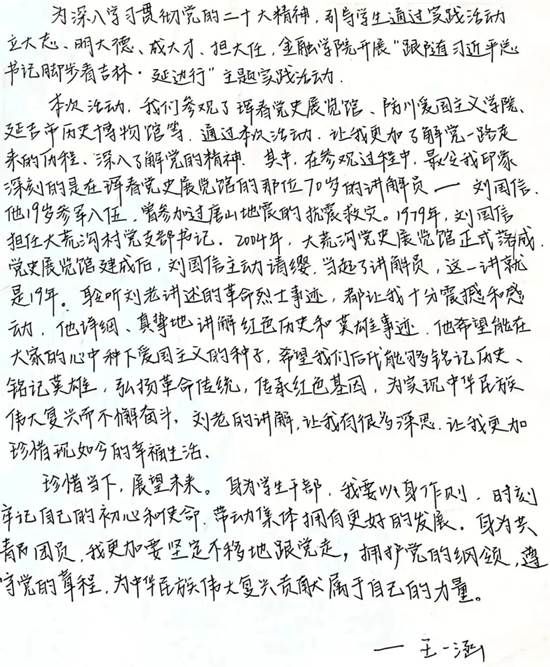 为深入学习贯彻党的二十大精神，引导学生通过实践活动
立大志、明大德、成大才、担大任，金融学院开展“跟随习近平总
书记脚步看吉林·延边行”主题实践活动.
本次活动，我们参观了珲春党史展览馆、防川爱国主义学院、
延吉市历史博物馆等，通过本次活动，让我更加了解党一路走
来的历程、深入了解党的精神. 其中，在参观过程中，最令我印象
深刻的是在珲春党史展览馆的那位70岁的讲解员 — 刘国信.
他19岁参军入伍，曾参加过唐山地震的抗震救灾。1979年，刘国信
担任大荒沟村党支部书记。2004年，大荒沟党史展览馆正式落成.
党史展览馆建成后，刘国信主动请缨，当起了讲解员，这一讲就
是19年。聆听刘老讲述的革命烈士事迹，都让我十分震撼和感
动，他详细、真挚地讲解红色历史和英雄事迹，他希望能在
大家的心中种下爱国主义的种子，希望我们后代能够铭记历史、
铭记英雄，弘扬革命传统，传承红色基因，为实现中华民族
伟大复兴而不懈奋斗. 刘老的讲解，让我有很多深思，让我更加
珍惜现如今的幸福生活.
珍惜当下，展望未来。身为学生干部，我要以身作则，时刻
牢记自己的初心和使命，带动集体拥有更好的发展。身为共
青团员，我更加要坚定不移地跟党走，拥护党的纲领，遵
守党的章程，为中华民族伟大复兴贡献属于自己的力量。
— 王一涵